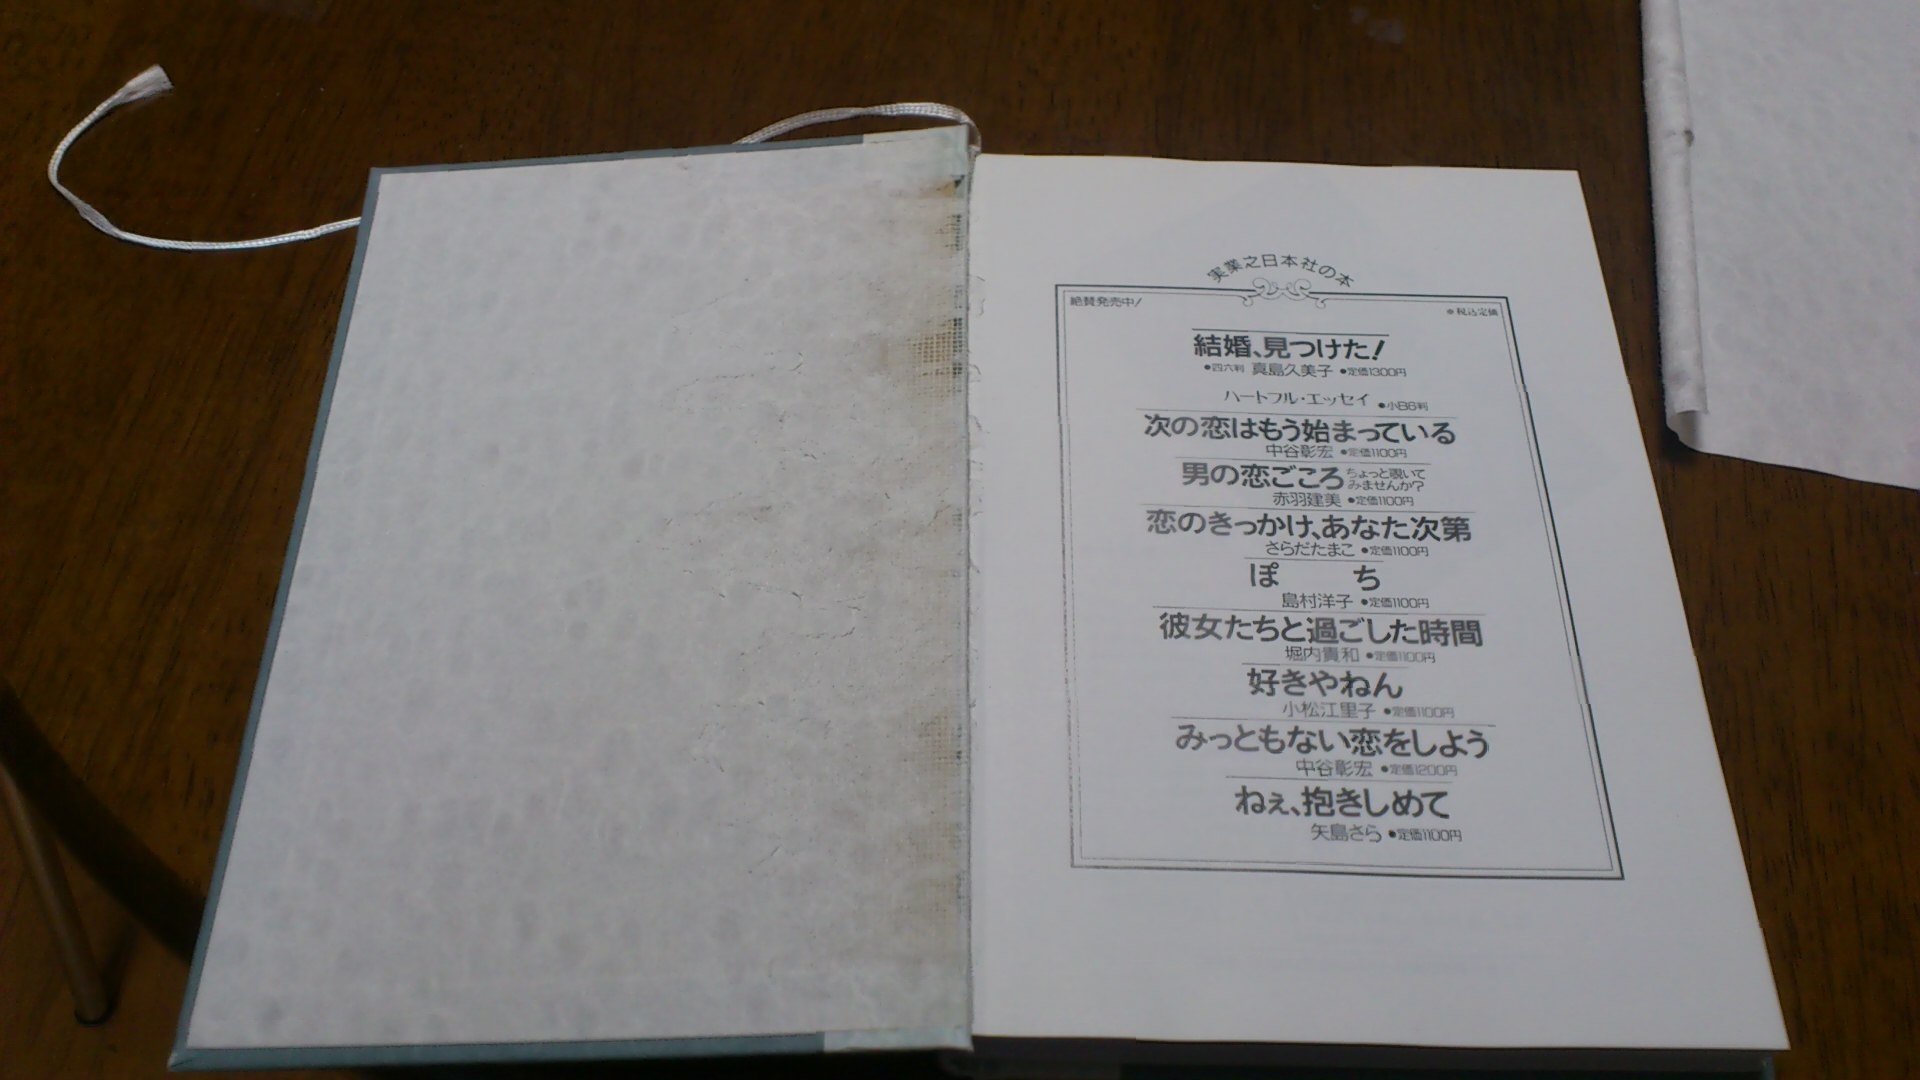 実業之日本社の本
絶賛発売中!
●税込定価
結婚、見つけた!
●四六判 真島久美子 ●定価1300円
ハートフル・エッセイ ●小B6判
次の恋はもう始まっている
中谷彰宏 ●定価1100円
男の恋ごころ ちょっと覗いて
みませんか?
赤羽建美 ●定価1100円
恋のきっかけ、あなた次第
さらだたまこ ●定価1100円
ぽち
島村洋子 ●定価1100円
彼女たちと過ごした時間
堀内貴和 ●定価1100円
好きやねん
小松江里子 ●定価1100円
みっともない恋をしよう
中谷彰宏 ●定価1200円
ねぇ、抱きしめて
矢島さら ●定価1100円